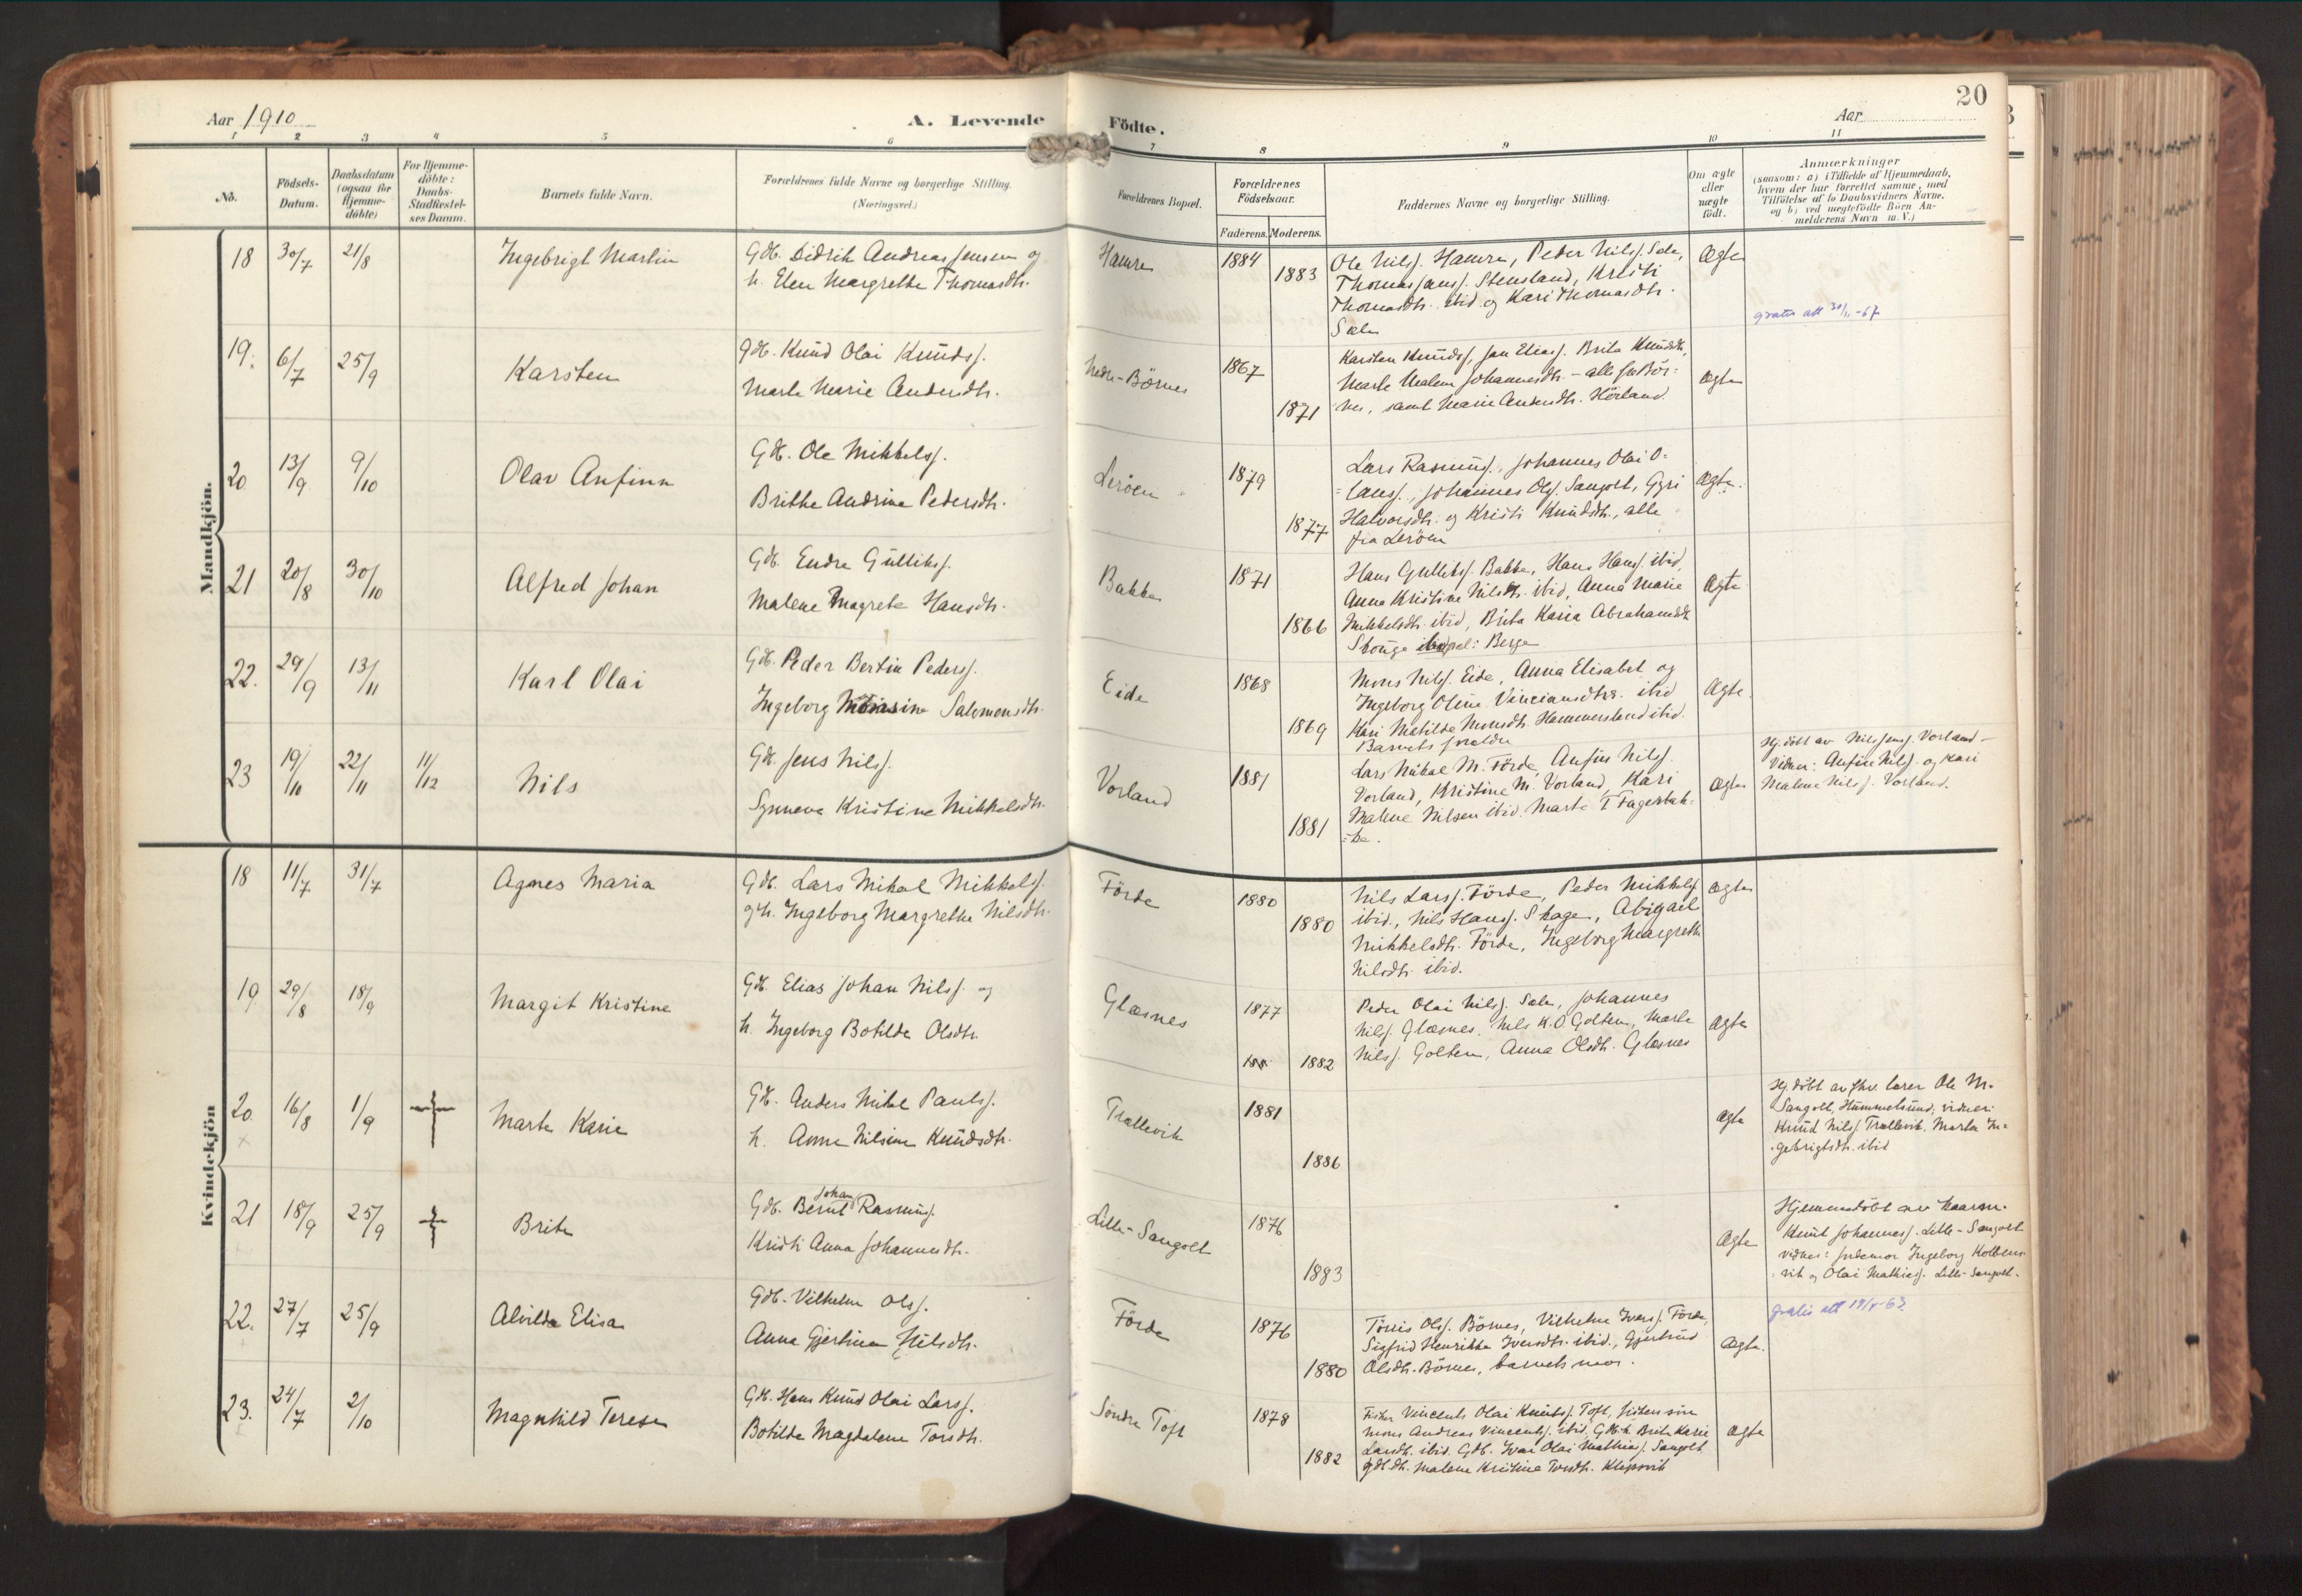 20
Aar 1910
A. Levende Födte.
Aar
1 2 3 4 5 6 7 8 9 10 11
No.
Födsels-Datum.
Daabsdatum (ogsaa for Hjemme-döbte)
For Hjemme-döbte: Daabs-Stadfæstel-ses Datum.
Barnets fulde Navn.
Forældrenes fulde Navne og borgerlige Stilling. (Næringsvei.)
Forældrenes Bopæl.
Forældrenes Födselsaar.
Faderens. Moderens.
Faddernes Navne og borgerlige Stilling.
Om ægte eller uægte födt.
Anmærkninger
(saasom: a) i Tilfælde af Hjemmedaab,
hvem der har forrettet samme, med
Tilföielse af to Daabsvidners Navne.
og b) ved uægtefödte Börn An-
melderens Navn m.V.)
Mandkjön.
18 30/7 21/8 Ingebrigt Martin
Gdb. Didrik Andreas Jensen og
h. Elen Margrethe Thomasdtr.
Hamre 1884 1883
Ole Nilss. Hamre, Peder Nilss. Sæle,
Thomas Janss. Stensland, Kristi
Thomasdtr. ibid og Kari Thomasdtr.
Sæle
Ægte
gratis att 30/11-67
19. 6/7 25/9 Karsten
Gdb. Knud Olai Knudss.
Marte Marie Andersdtr.
Nedre-Börnes 1867 1871
Karsten Knudss, Jan Eliass. Brita Knudsdtr,
Marte Malene Johannesdtr. - alle fra Bör=
nes, samt Marie Andersdtr. Hörland
ægte
20 13/9 9/10 Olav Anfinn
Gdb. Ole Mikkelss.
Brithe Andrine Pedersdtr.
Leröen 1879 1877
Lars Rasmuss., Johannes Olai O=
=lauss., Johannes Olss. Sangolt, Gyri
Halvorsdtr. og Kristi Knudsdtr., alle
fra Leröen
Ægte.
21 20/8 30/10 Alfred Johan
Gdb. Endre Gullikss.
Malene Magrete Hansdtr.
Bakke 1871 1866
Hans Gullikss. Bakke, Hans Hanss. ibid,
Anna Kristine Nilsdtr. ibid, Anna Marie
Mikkelsdtr. ibid, Brita Karia Abrahamsdtr.
Skouge
Ægte
22. 29/9 13/11 Karl Olai
Gdb. Peder Bertin Pederss.
Ingeborg Salomonsdtr.
Eide 1868 1869
Mons Nilss. Eide, Anna Elisabet og
Ingeborg Oline Vinciansdtre. ibid
Kari Matilde Monsdtr. Hammersland ibid.
Barnets forældre
Ægte.
23 19/10 22/11 11/12 Nils
Gdb. Jens Nilss.
Synneva Kristine Mikkelsdtr.
Vorland 1881 1881
Lars Mikal M. Förde, Anfin Nilss.
Vorland, Kristine M. Vorland, Kari
Malene Nilsen ibid. Marta T Fagerbak=
=ke.
Ægte
Hj. döbt av Nils Jenss. Vorland -
Vidner: Anfin Nilss. og Kari
Malene Nilss. Vorland.
Kvindekjön
18 11/7 31/7 Agnes Maria
Gdb. Lars Mikal Mikkelss.
og h. Ingeborg Margrethe Nilsdtr.
Förde 1880 1880
Nils Larss. Förde, Peder Mikkelss
ibid., Nils Hanss. Skage, Abigael
Mikkelsdtr. Förde, Ingeborg Margrethe
Nilsdtr. ibid.
Ægte
19 29/8 18/9 Margit Kristine
Gdb. Elias Johan Nilss. og
h. Ingeborg Botilde Olsdtr.
Glæsnes 1877 1882
Peder Olai Nilss. Sæle, Johannes
Nilss. Glæsnes, Nils K.O. Golten, Marte
Nilss. Golten, Anna Olsdtr. Glæsnes
Ægte
20 16/8 1/9 Marte Karie
Gdb. Anders Mikal Paulss.
h. Anne Nilsine Knudsdtr.
Trællevik 1881 1886
ægte
Hj. döbt av fhv. lærer Ole M.
Sangolt, Hummelsund, vidner:
Knud Nilss. Trællevik, Marta In=
gebrigtsdtr. ibid
21 18/9 25/9 Brite
Gdb. Bernt Johan Rasmuss.
Kristi Anna Johannesdtr.
Lille-Sangolt 1876 1883
Ægte
Hjemmedöbt av
Knut Johanness. Lille-Sangolt
vidner: jordemor Ingeborg Kolbens=
=vik og Olai Mathiass. Lille-Sangolt.
22. 27/7 25/9 Alvilde Elisa
Gdb. Vilhelm Olss.
Anna Gjertina Nilsdtr.
Förde 1876 1880
Tönnis Olss. Börnes, Vilhelm Iverss. Förde,
Sigfrid Henrikke Iversdtr. ibid., Gjertrud
Olsdtr. Börnes, barnets mor.
Ægte.
gratis att 19/5-63
23. 24/7 2/10 Magnhild Terese
Gdb. Hans Knud Olai Larss.
Botilde Magdalene Torsdtr.
Söndre Toft 1878 1882
Fisker Vincents Olai Knutss. Toft, fiskersön
Mons Andreas Vincentss. ibid, Gdb.h. Brita Karie
Larsdtr. ibid. Gdb. Ivar Olai Mathiass. Sangolt
gdb.dtr. Malene Kristine Torsdtr. Klepsvik
ægte